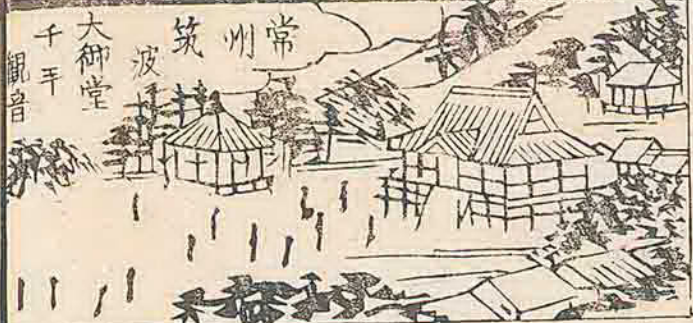 常州筑波
大御堂
千手
観音